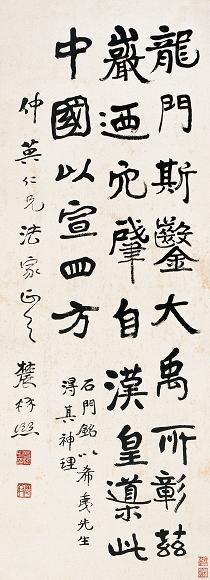 龍門斯鑿大禹所彰茲
巖迺穴肇自漢皇導此
中國以宣四方
石門銘以希夷先生
得其神理
仲英仁兄法家正之 農髯熙